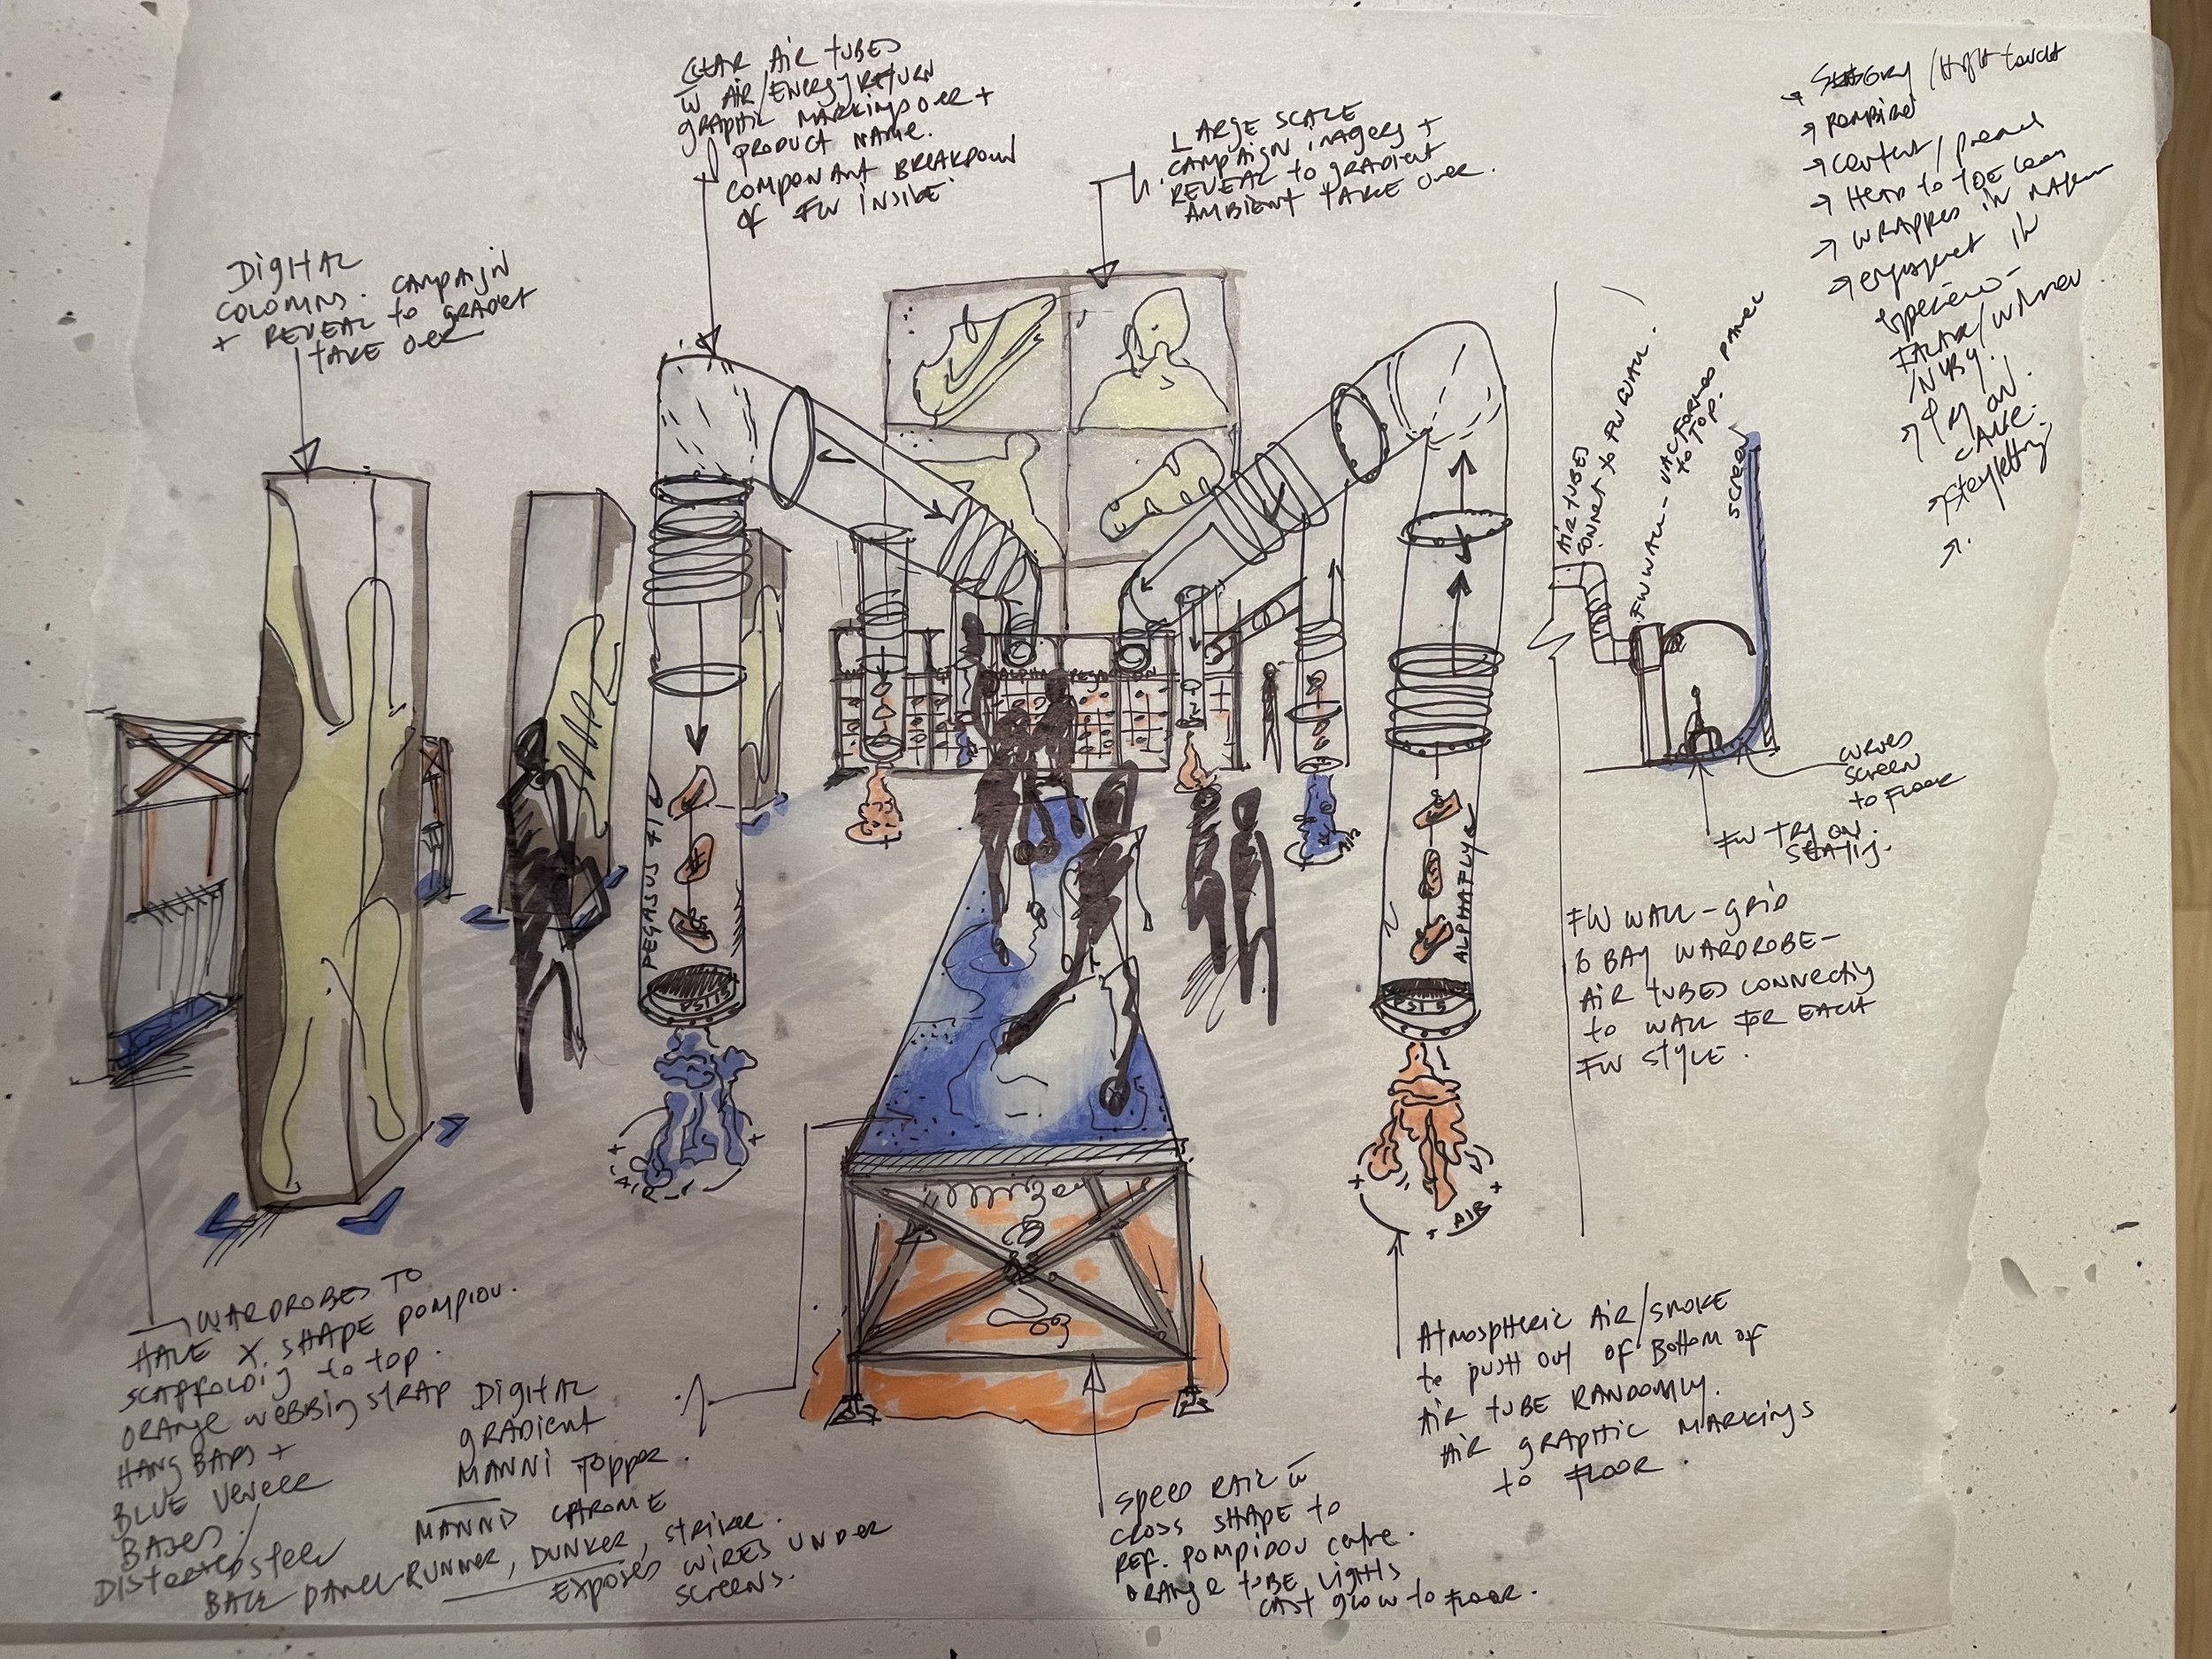 CLEAR AIR TUBES
W AIR/ENERGY RETURN
GRAPHIC MARKINGS OVER +
PRODUCT NAME.
COMPONANT BREAKDOWN
OF FW INSIDE.
LARGE SCALE
CAMPAIGN IMAGERY +
REVEAL to GRADIENT
AMBIENT TAKE OVER.
DIGITAL
COLOMNS. CAMPAIGN
+ REVEAL to GRADIENT
TAKE OVER
→ /HIGH TOUCH
→
→ CONTENT /
→ HEAD to TOE
→ WRAPPED IN
→ IN
→ TRY ON
→ STORYTELLING
→.
AIR TUBES
CONNECT to FW WALL.
FW WALL - VAC FORMED PANEL
to TOP.
SCREEN
CURVED
SCREEN
to FLOOR
FW TRY ON
SEATING.
FW WALL - GRID
BAY WARDROBE -
AIR TUBES CONNECTING
to WALL FOR EACH
FW STYLE.
PEGASUS 41
PSI 15
AIR
ALPHAFLY
PSI 15
AIR
AIR
ATMOSPHERIC AIR/SMOKE
to PUSH OUT OF BOTTOM OF
AIR TUBE RANDOMLY.
AIR GRAPHIC MARKINGS
to FLOOR.
WARDROBES TO
HAVE X SHAPE POMPIDU.
SCAFFOLDIG to TOP.
ORANGE WEBBING STRAP
HANG BARS +
BLUE VENEER
BASES.
STEEL
BACK PANEL
DIGITAL
GRADIENT
MANNI TOPPER.
MANNIS CHROME
RUNNER, DUNKER, STRIKER.
EXPOSED WIRES UNDER
SCREENS.
SPEED RAIL W
CROSS SHAPE to
REF. POMPIDOU CENTRE.
ORANGE TUBE LIGHTS
CAST GLOW to FLOOR.